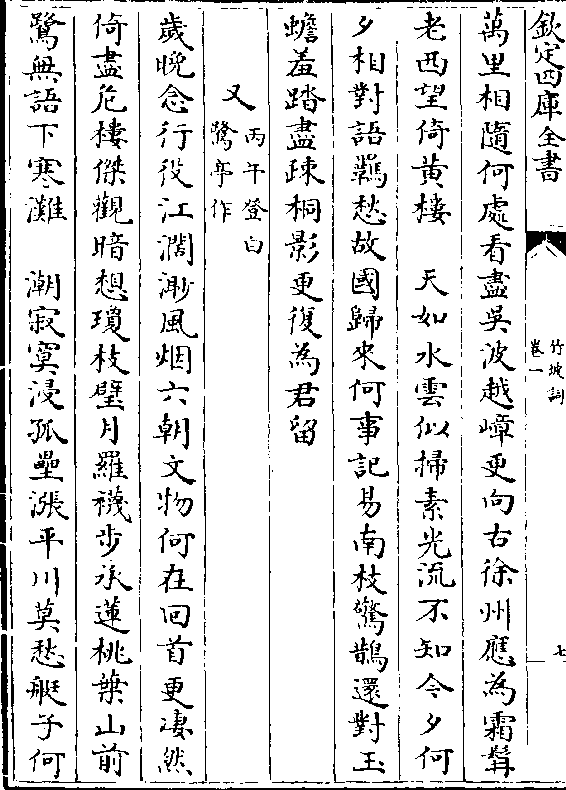 欽定四庫全書
竹坡詞
卷一
七
萬里相隨何處看盡吳波越嶂更向古徐州應為霜髯
老西望倚黃樓　天如水雲似掃素光流不知今夕何
夕相對語羈愁故國歸來何事記易南枝驚鵲還對玉
蟾羞踏盡疎桐影更復為君留
又
丙午登白
鷺亭作
歲晚念行役江濶渺風烟六朝文物何在回首更凄然
倚盡危樓傑觀暗想瓊枝璧月羅襪步承蓮桃葉山前
鷺無語下寒灘　潮寂寞浸孤壘漲平川莫愁艇子何